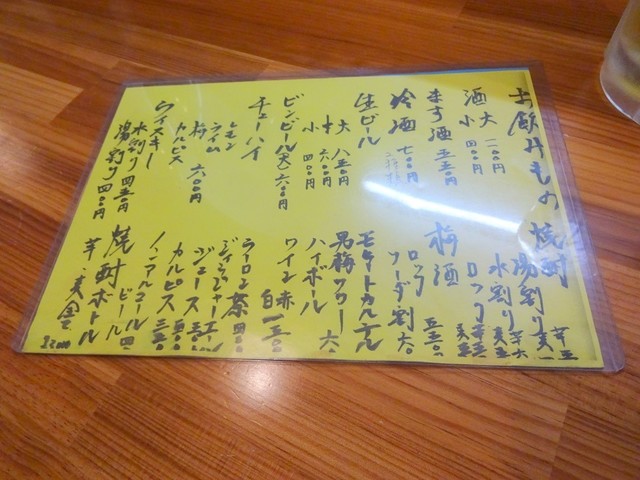 お飲みもの
酒 大 一,〇〇円
小 四〇〇円
ます酒 五五〇円
冷酒 七〇〇円
生ビール
大 八五〇円
中 六〇〇円
小 四〇〇円
ビンビール(大) 六〇〇円
チューハイ
レモン
ライム
梅 六〇〇円
カルピス
ウイスキー
水割り 四五〇円
湯割り 四〇〇円
焼酎
湯割り
水割り
ロック
梅酒
ロック 五五〇
ソーダ割 六〇
モクテトカルテル
男梅サワー 六、
ハイボール
ワイン 赤
白 一五〇
ウーロン茶 四〇〇
ジンジャーエール
ジュース
カルピス 三五〇
ノンアルコール
ビール 四
焼酎ボトル
芋・麦